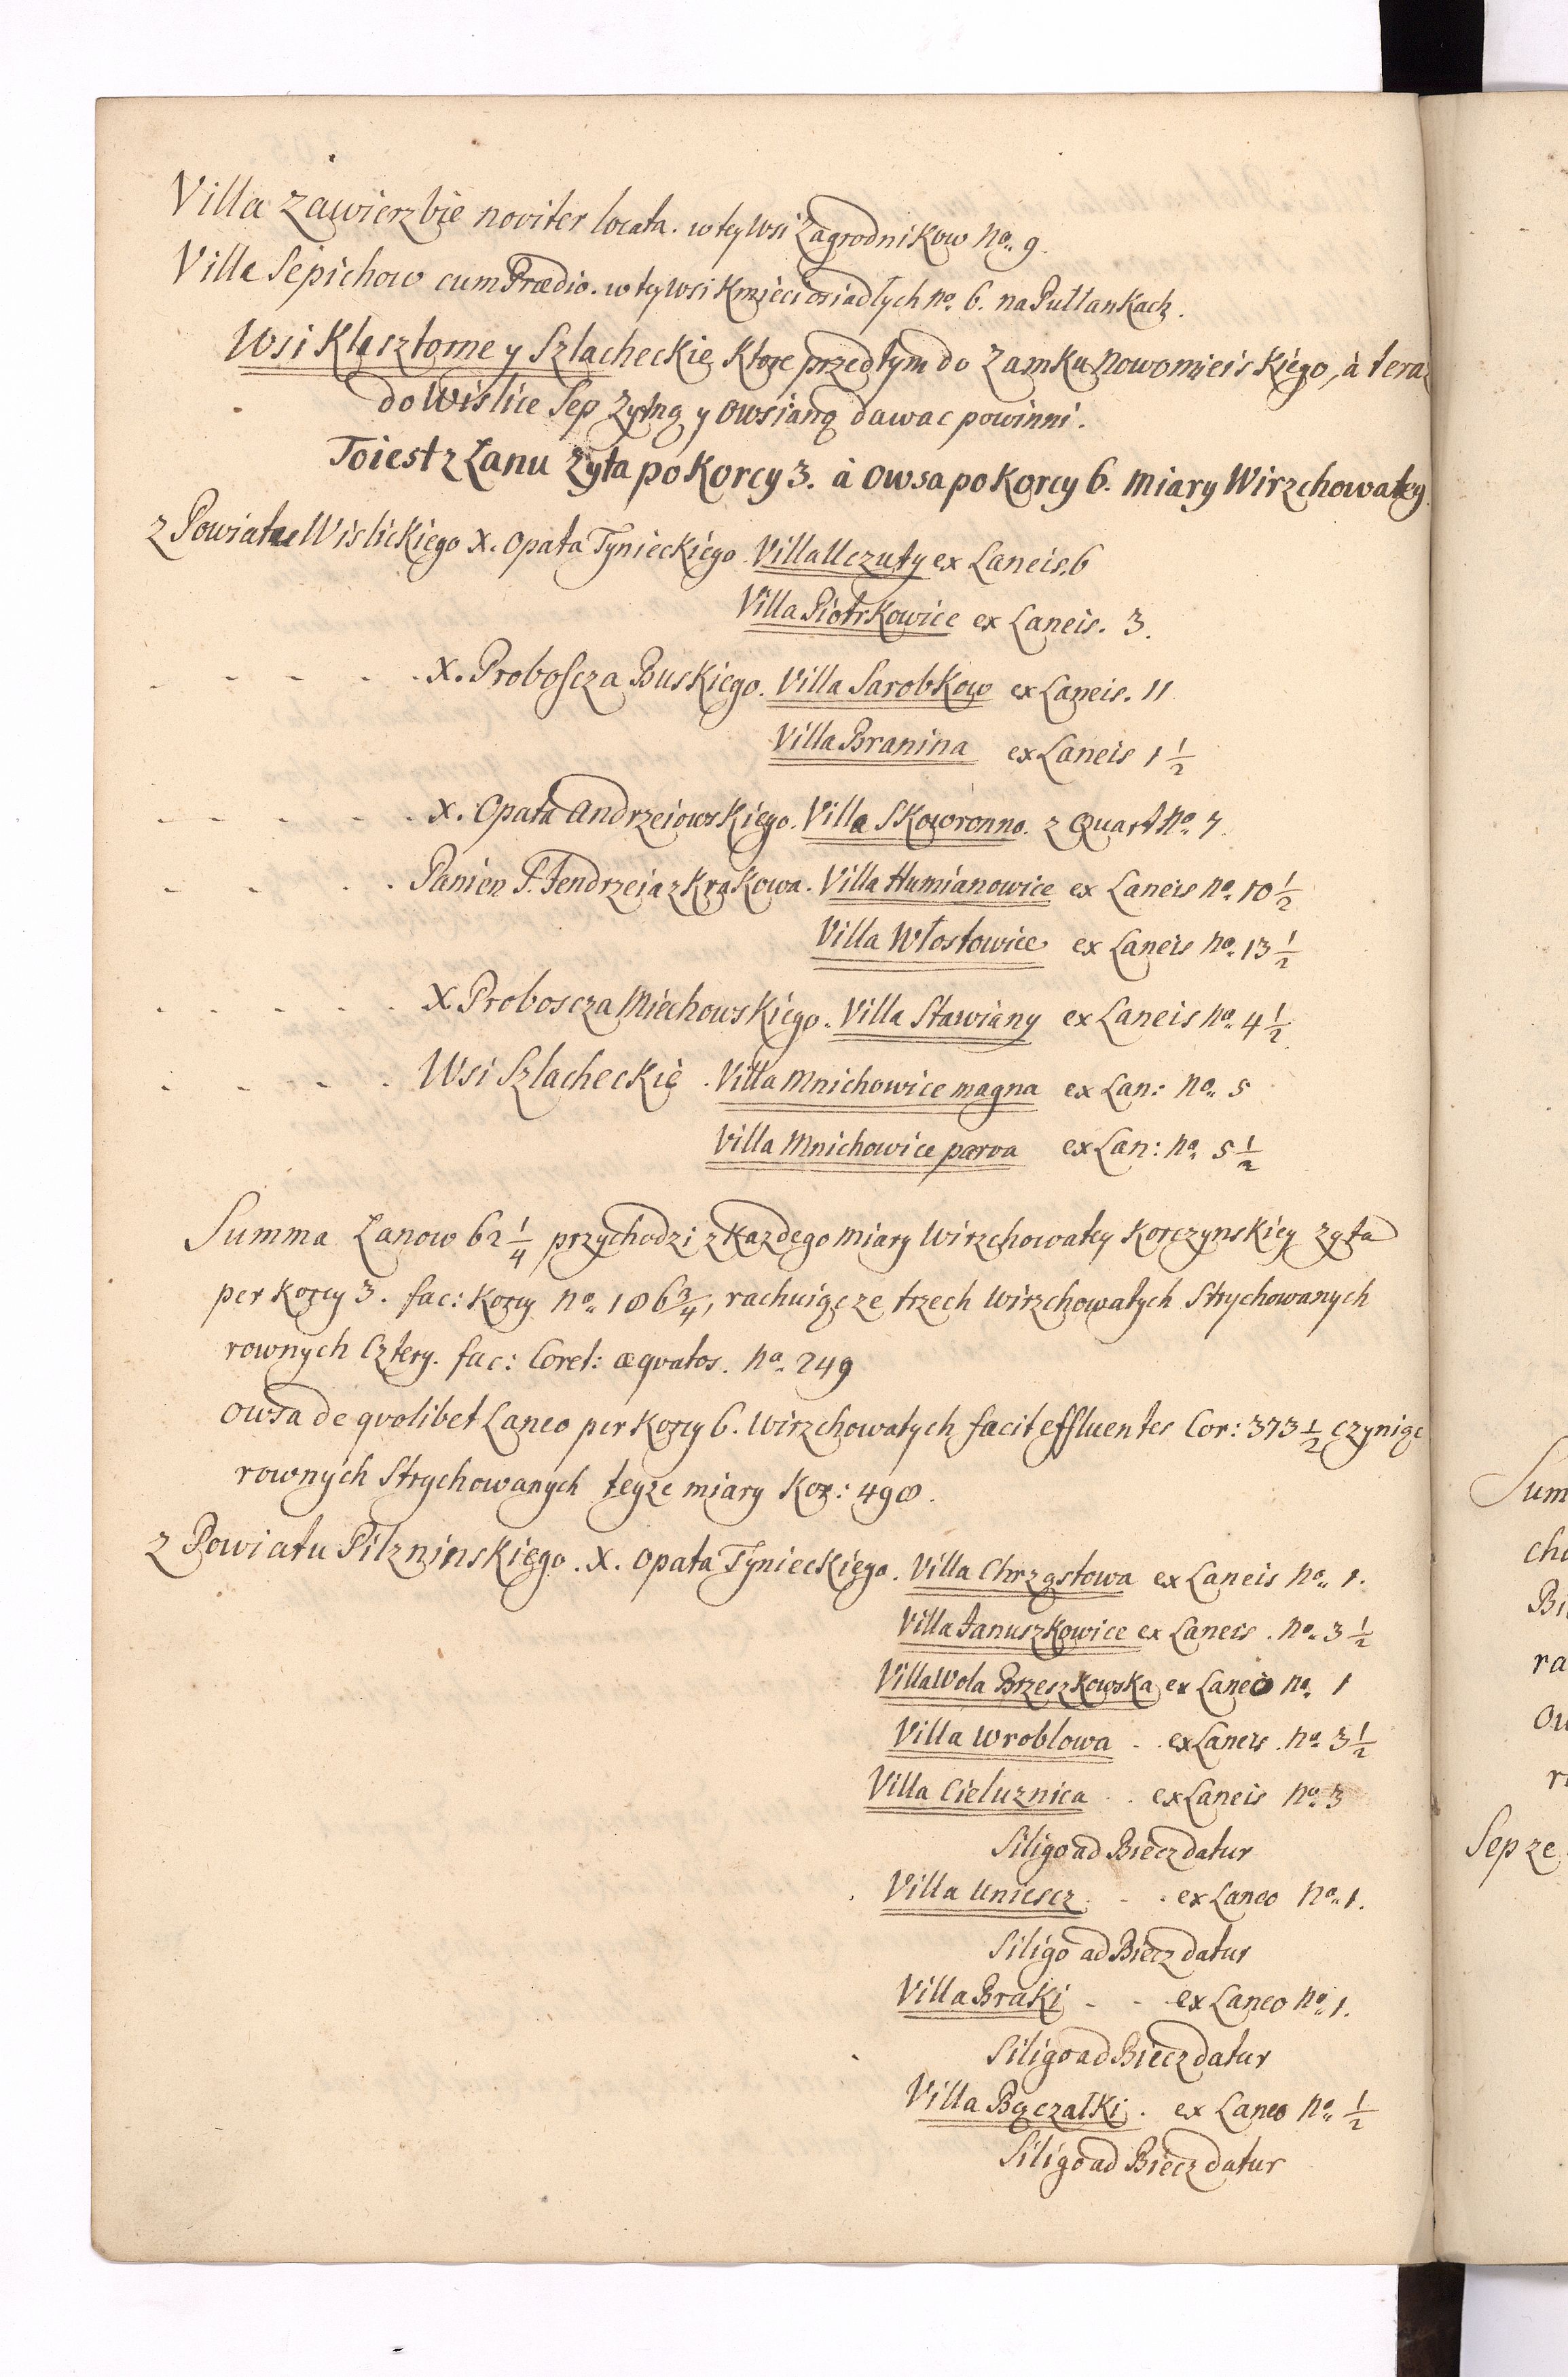 Villa Zawierzbie noviter locata. w tey Wsi Zagrodnikow No. 9.
Villa Sepichow cum Prædio. w tey wsi Kmieci osiadłych no. 6. na Pułłankach.
Wsi Klasztorne y Szlacheckie Ktore przedtym do Zamku Nowomieiskiego, à teraz
do Wislice Sep Zytną y Owsianą dawac powinni.
To iest z Łanu Zyta po Korcy 3. à Owsa po Korcy 6. Miary Wirzchowatey.
z Powiatu Wislickiego X. Opata Tynieckiego. Villa Uczuty ex Laneis. 6
Villa Piotrkowice ex Laneis. 3.
- - - - - X. Proboscza Buskiego. Villa Sarobkow ex Laneis. 11
Villa Branina ex Laneis 1 1/2
- - - - - X. Opata Andrzeiowskiego. Villa Skoworonno. z Quart No. 7.
- - - . Panien S. Jendrzeia z Krakowa. Villa Humianowice ex Laneis No. 10 1/2
Villa Włostowice ex Laneis No. 13 1/2
- - - - - X Proboscza Miechowskiego. Villa Stawiany ex Laneis No. 4 1/2
- - - - - Wsi Szlacheckie . Villa Mnichowice magna ex Lan: No. 5
Villa Mnichowice parva ex Lan: No. 5 1/2
Summa Łanow 62 1/4 przychodzi z Kazdego Miary Wirzchowatey Korczynskiey zyta
per Korcy 3. fac: Korcy No. 186 3/4, rachuiąc ze trzech Wirzchowatych Strychowanych
rownych Cztery. fac: Coret: æqvatos. No. 249
Owsa de qvolibet Laneo per Korcy 6. Wirzchowatych facit effluentes Cor: 373 1/2 czyniąc
rownych Strychowanych teyze miary Kor: 498.
z Powiatu Pilzninskiego. X. Opata Tynieckiego. Villa Chrząstowa ex Laneis No. 1.
Villa Januszkowice ex Laneis. No. 3 1/2
Villa Wola Brzeszkowska ex Laneo No. 1
Villa Wroblowa - . ex Laneis. No. 3 1/2
Villa Cieluznica . . ex Laneis No. 3
Siligo ad Biecz datur
Villa Uniescz. - . ex Laneo No. 1.
Siligo ad Biecz datur
Villa Braki - - ex Laneo No. 1.
Siligo ad Biecz datur
Villa Bączałki. ex Laneo No. 1/2
Siligo ad Biecz datur